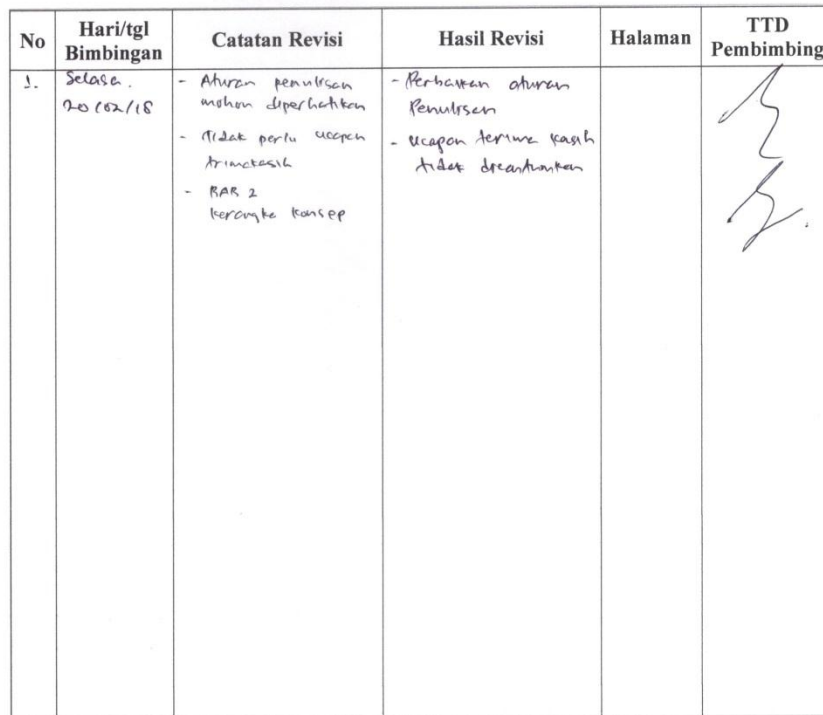 No
Hari/tgl
Bimbingan
Catatan Revisi
Hasil Revisi
Halaman
TTD
Pembimbing
1.
Selasa.
20/02/18
- Aturan penulisan
mohon diperhatikan
- Tidak perlu ucapan
trimakasih
- BAB 2
kerangka konsep
- Perbaikan aturan
Penulisan
- Ucapan terima kasih
tidak dicantumkan